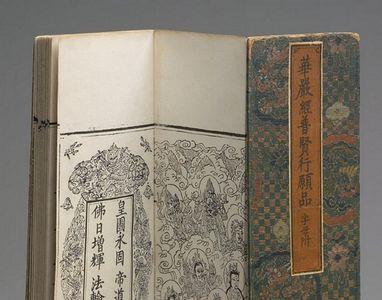 華嚴經普賢行願品 字音附
皇圖永固 帝道
佛日增輝 法輪